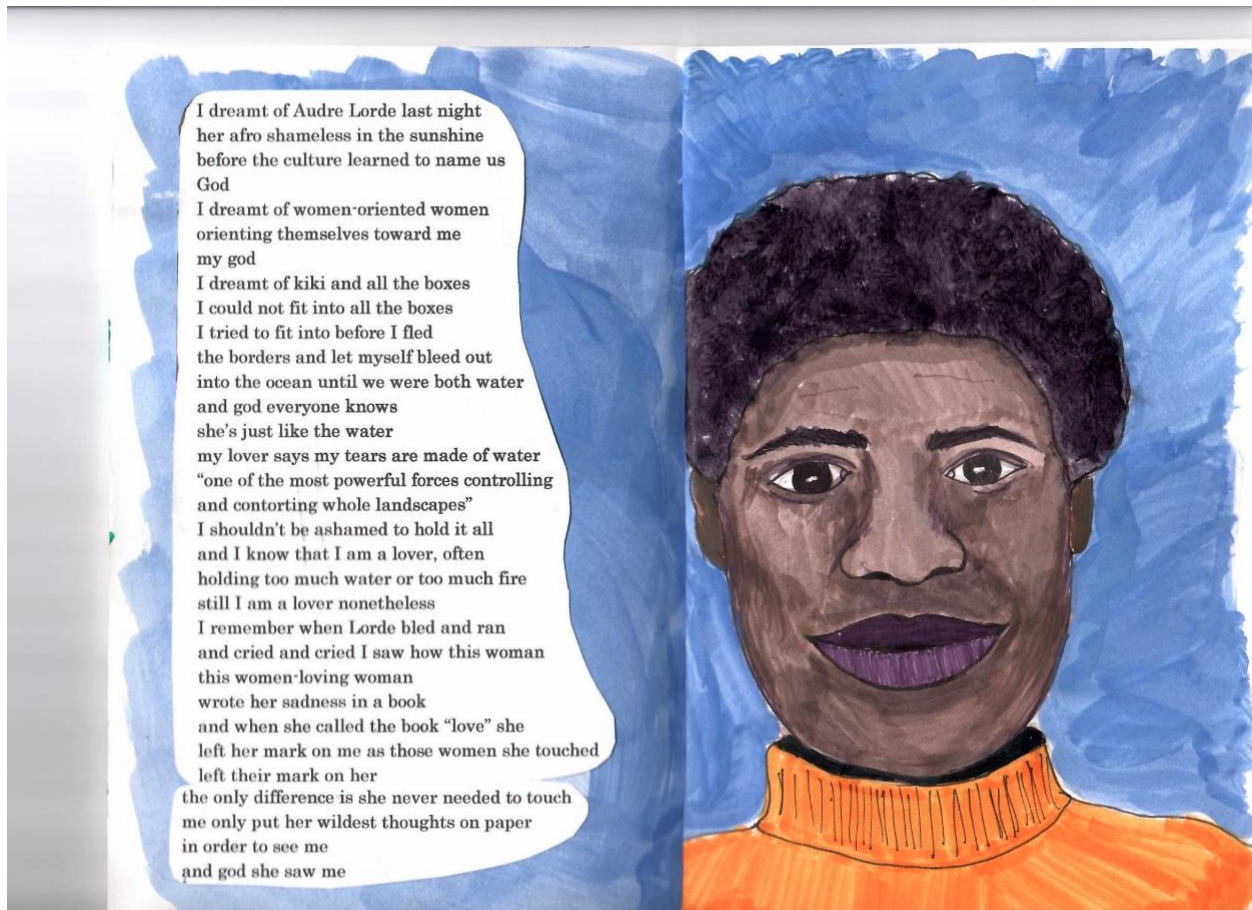 I dreamt of Audre Lorde last night
her afro shameless in the sunshine
before the culture learned to name us
God
I dreamt of women-oriented women
orienting themselves toward me
my god
I dreamt of kiki and all the boxes
I could not fit into all the boxes
I tried to fit into before I fled
the borders and let myself bleed out
into the ocean until we were both water
and god everyone knows
she's just like the water
my lover says my tears are made of water
“one of the most powerful forces controlling
and contorting whole landscapes”
I shouldn't be ashamed to hold it all
and I know that I am a lover, often
holding too much water or too much fire
still I am a lover nonetheless
I remember when Lorde bled and ran
and cried and cried I saw how this woman
this women-loving woman
wrote her sadness in a book
and when she called the book “love” she
left her mark on me as those women she touched
left their mark on her
the only difference is she never needed to touch
me only put her wildest thoughts on paper
in order to see me
and god she saw me